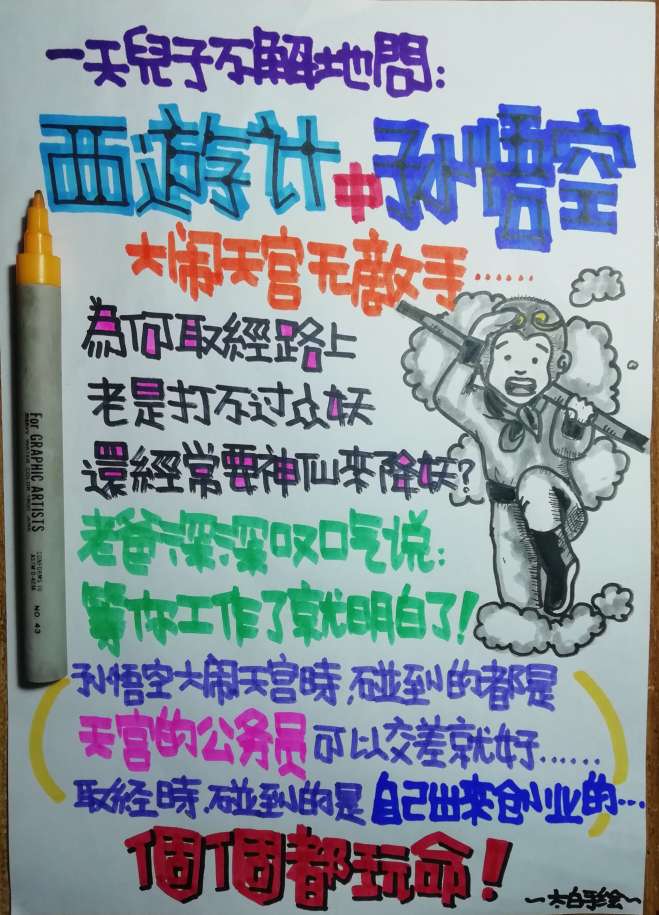 一天兒子不解地問:
西遊计中孙悟空
大闹天宫无敵手……
為何取經路上
老是打不过众妖
還經常要神仙來降妖?
老爸深深叹口气说:
等你工作了就明白了!
孙悟空大闹天宫時,碰到的都是
天宫的公务员可以交差就好……
取经時,碰到的是自己出来创业的…
個個都玩命!
~太白手绘~
For GRAPHIC ARTISTS
CONFORMS TO
ASTM D-4236
NO. 43